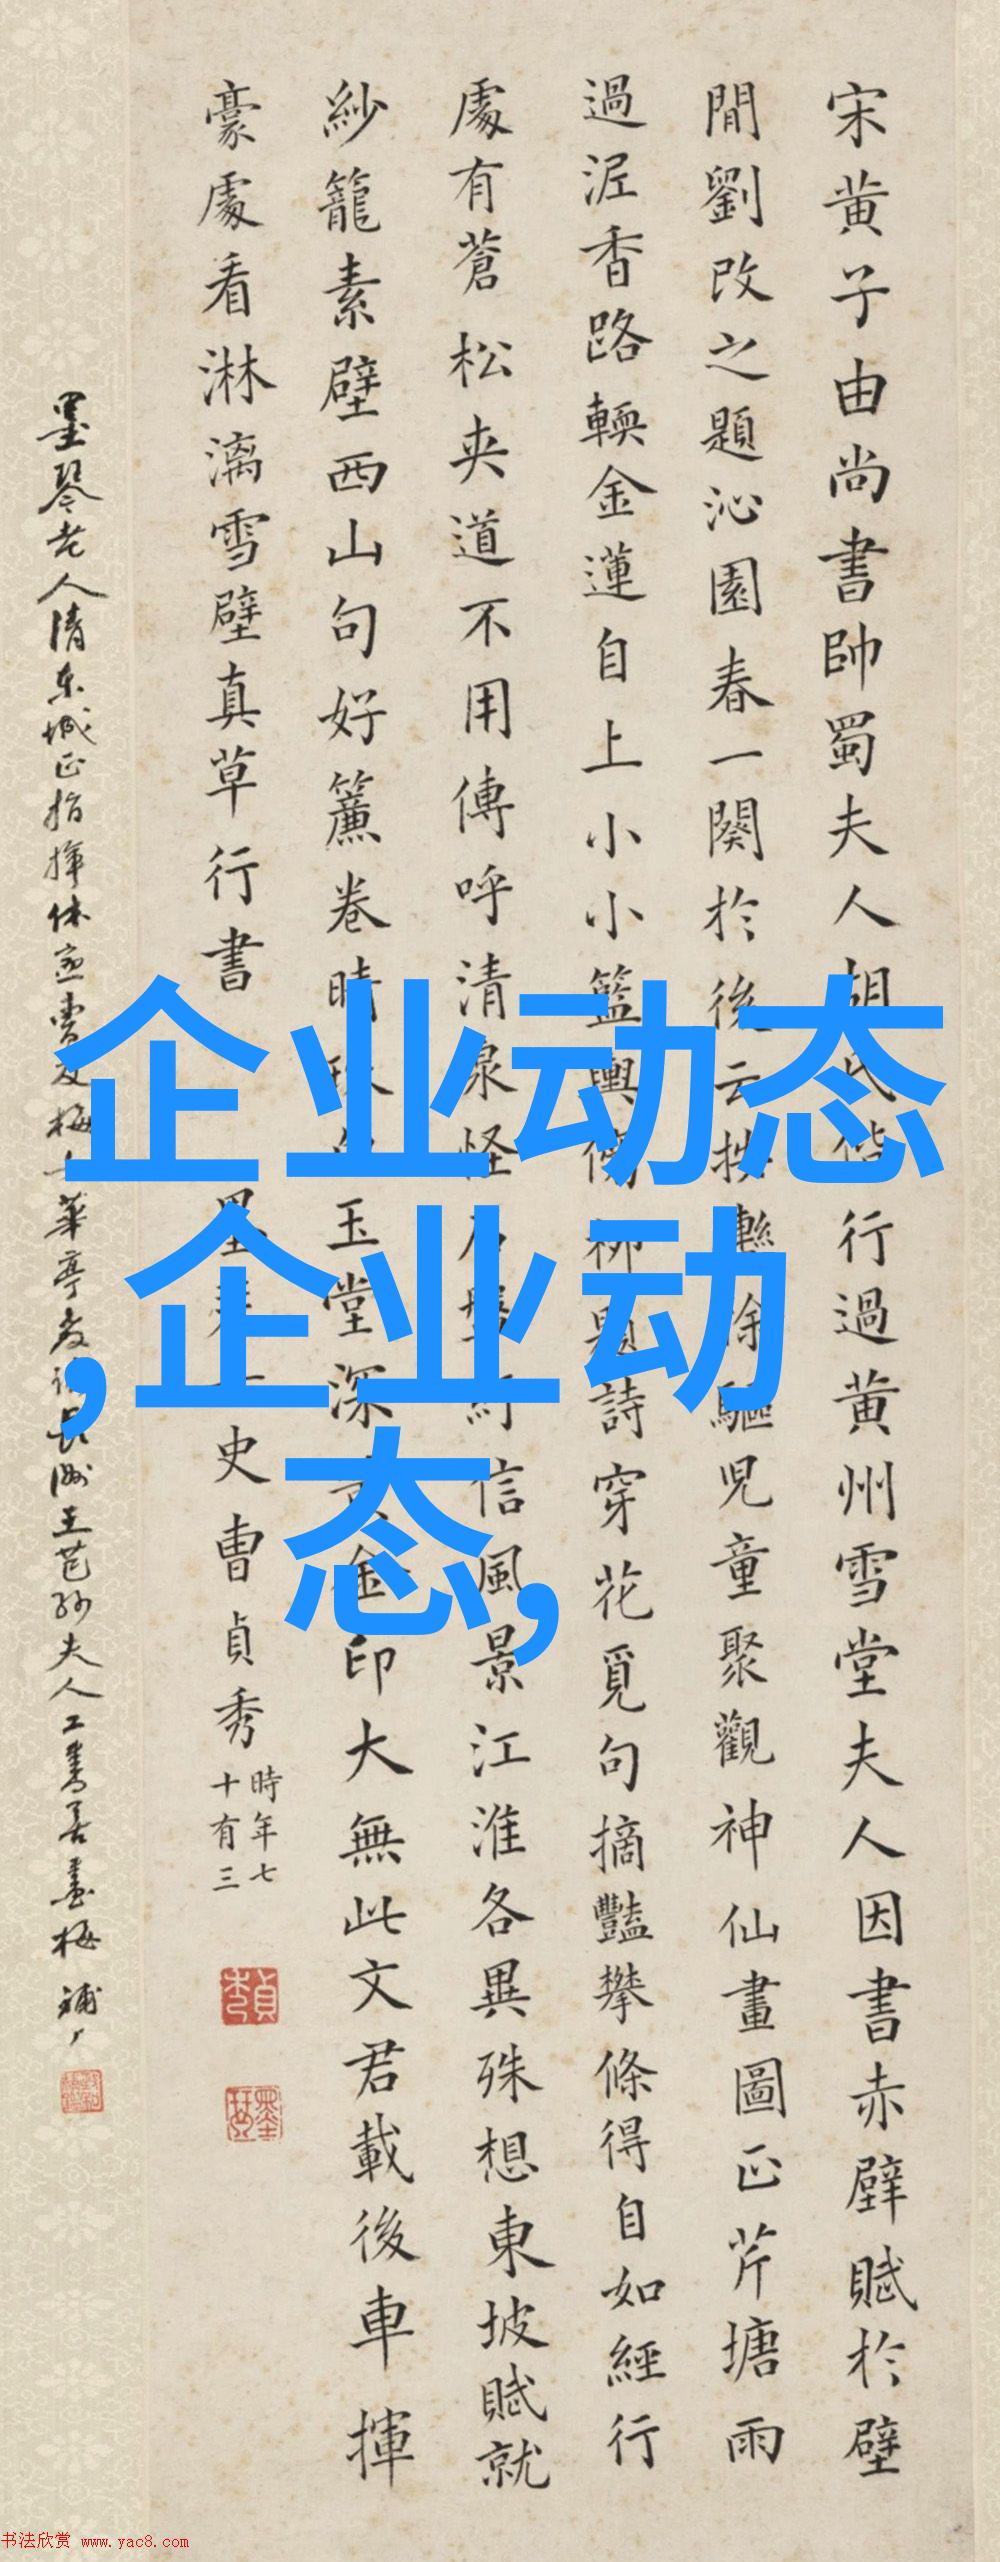 宋黄子由尚書帥蜀夫人胡氏偕行過黄州雪堂夫人因書赤壁賦於壁
間劉改之題沁園春一闋於後云按轡徐驅児童聚觀神仙畫圖正芹塘雨
過泥香路輭金蓮自上小小籃輿傍柳題詩穿花覓句摘豔攀條得自如經行
處有蒼松夾道不用傳呼清泉怪石盤紆信風景江淮各異殊想東坡賦就
紗籠素壁西山句好簾卷晴玉堂深金印大無此文君載後車揮
豪處看淋漓雪壁真草行書
墨琴女史曹貞秀時年七十有三
墨琴老人清東城正指揮休曹友梅女華亭教諭長洲王芑孫夫人工書善畫梅
企业动态
,企业动
态,
书法欣赏 www.yac8.com